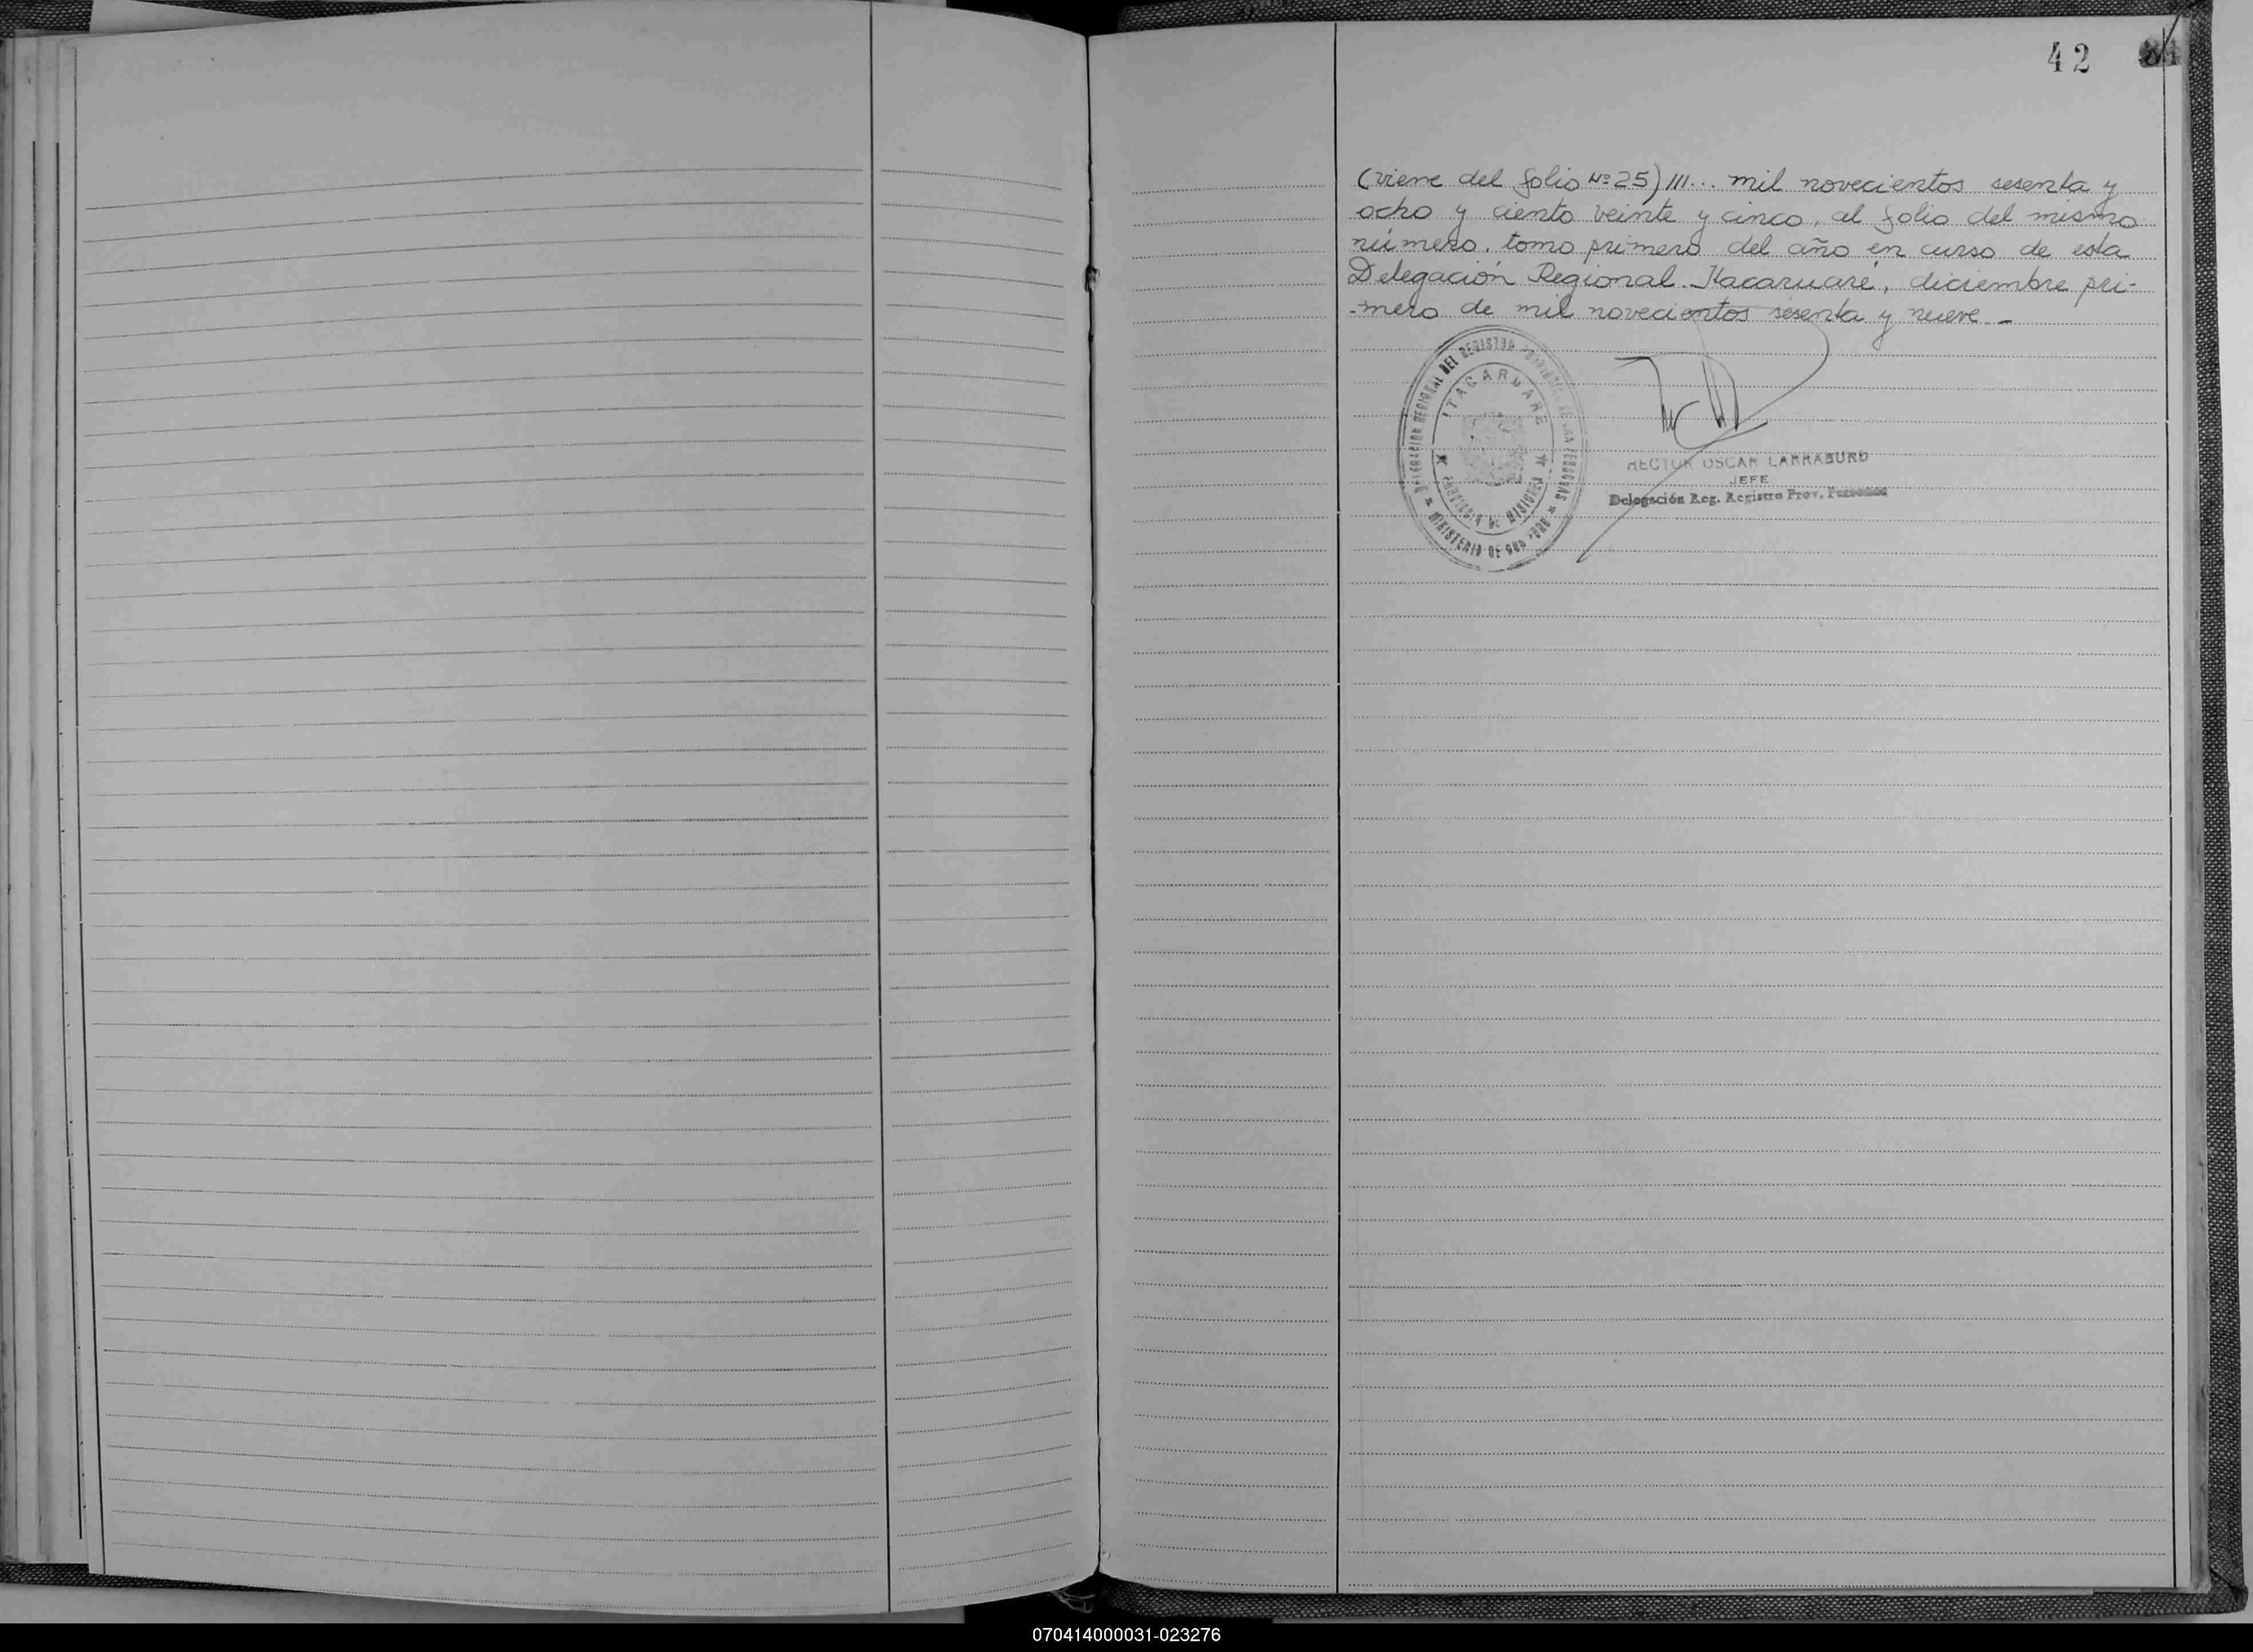 42
(viene del folio Nº 25) III... mil novecientos sesenta y
ocho y ciento veinte y cinco, al folio del mismo
número, tomo primero del año en curso de esta
Delegación Regional. Itacaruaré, diciembre pri-
-mero de mil novecientos sesenta y nueve.-
DELEGACION REGIONAL DEL REGISTRO PROVINCIAL DE LAS PERSONAS
ITACARUARE
PROVINCIA DE MISIONES
MINISTERIO DE GOB
HECTOR OSCAR LARRABURU
JEFE
Delegación Reg. Registro Prov. Personas
070414000031-023276